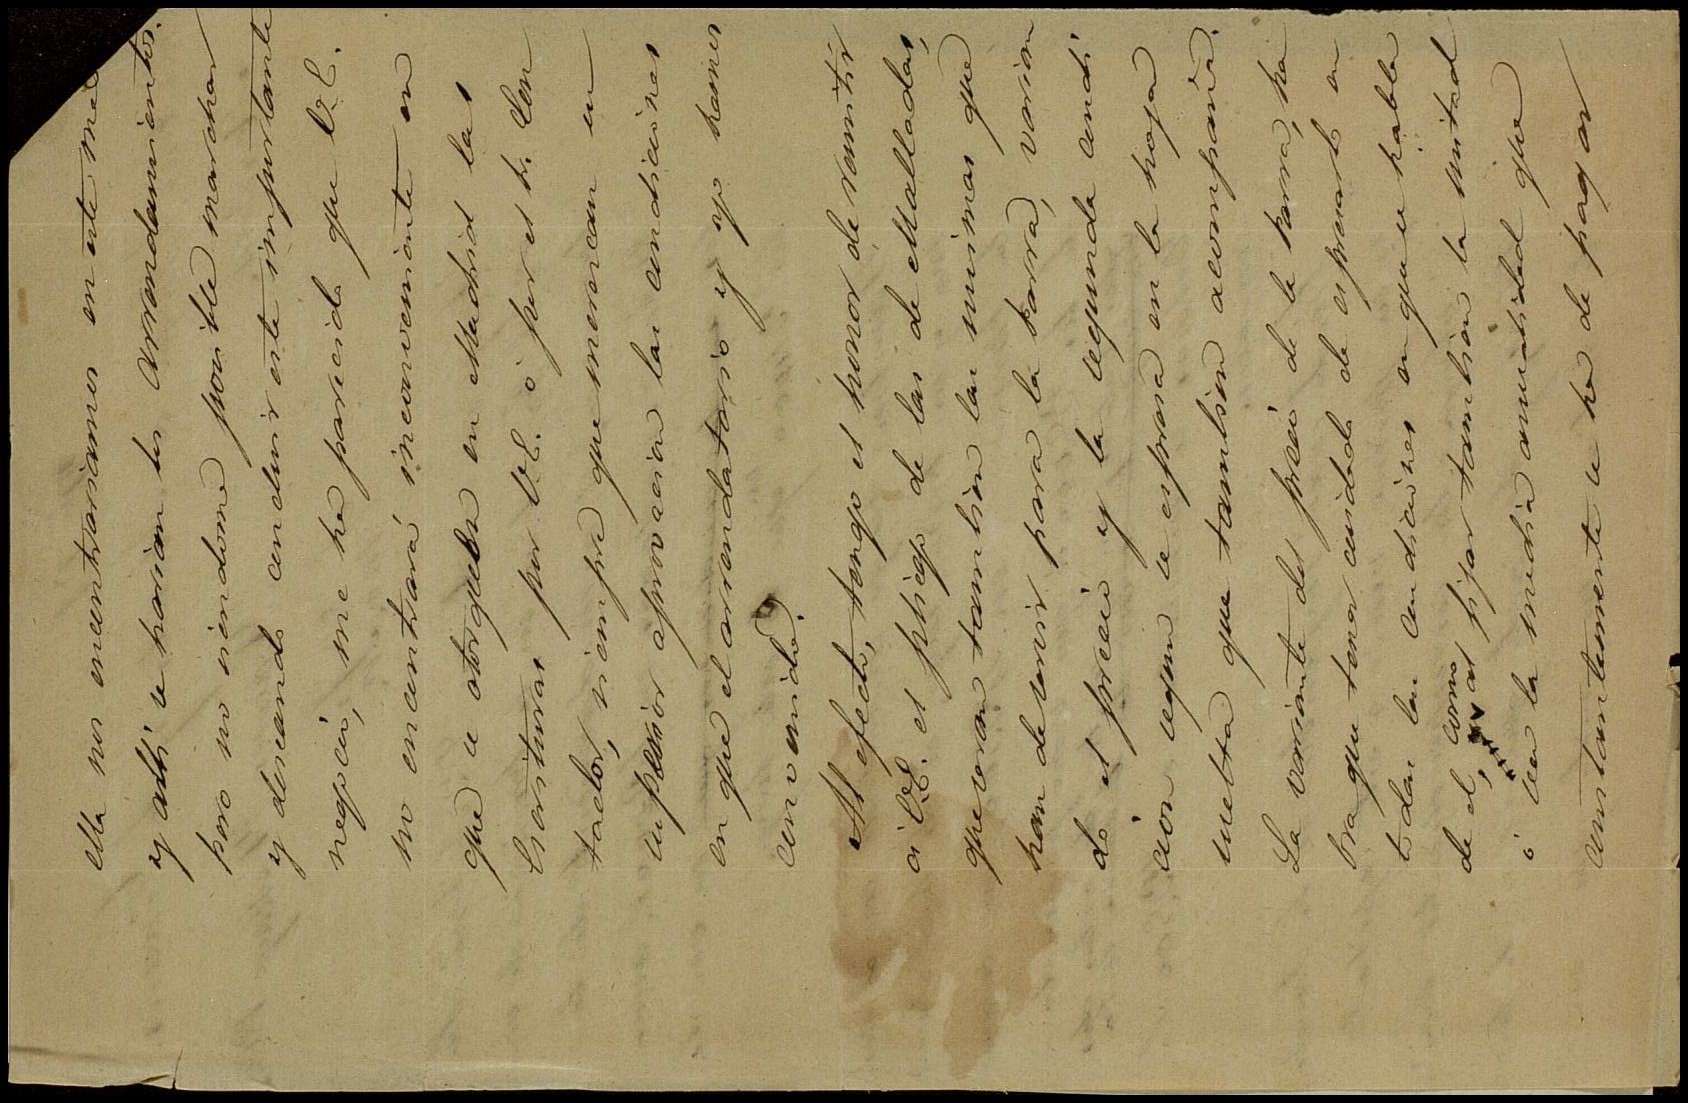 lla nos encontrariamos en este mes
y alli se harian los arrendamientos.
pero no siendome posible marchar
y deseando concluir este importante
negocio, me ha parecido que V.E.
no encontrará inconveniente en
que se otorguen en Madrid las
Escrituras por V.E. ó por el Sr. Con
tador, siempre que merezcan su
superior aprovacion las condiciones
en que el arrendatario y yo hemos
convenido.
Al efecto, tengo el honor de remitir
á V.E. el pliego de las de Malladas,
que seran tambien las mismas que
han de servir para la Parra, varian
do el precio y la segunda condi
cion segun se espresa en la hoja
suelta que tambien acompaña.
La variante del precio de la Parra, ha
bra que tener cuidado de espresarlo en
todas las condiciones en que se habla
de el, como al fijar tambien la mitad
ó sea la media anualidad que
constantemente se ha de pagar